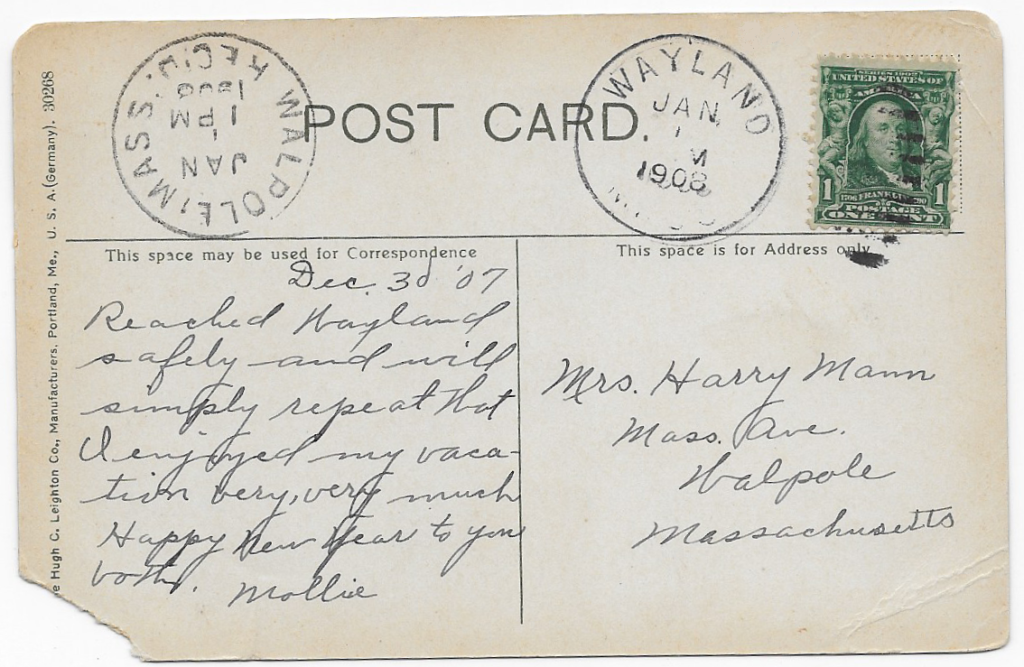 WALPOLE, MASS.
JAN
1
1 PM
1908
REC'D.
POST CARD.
WAYLAND
JAN
1
M
1908
SERIES 1902
UNITED STATES OF
AMERICA
1 1
1706 FRANKLIN 1790
POSTAGE
ONE CENT
e Hugh C. Leighton Co., Manufacturers, Portland, Me., U. S. A. (Germany). 30268
This space may be used for Correspondence
Dec. 30 '07
Reached Wayland
safely and will
simply repeat that
I enjoyed my vaca-
tion very, very much
Happy New Year to you
both. Mollie
This space is for Address only
Mrs. Harry Mann
Mass. Ave.
Walpole
Massachusetts